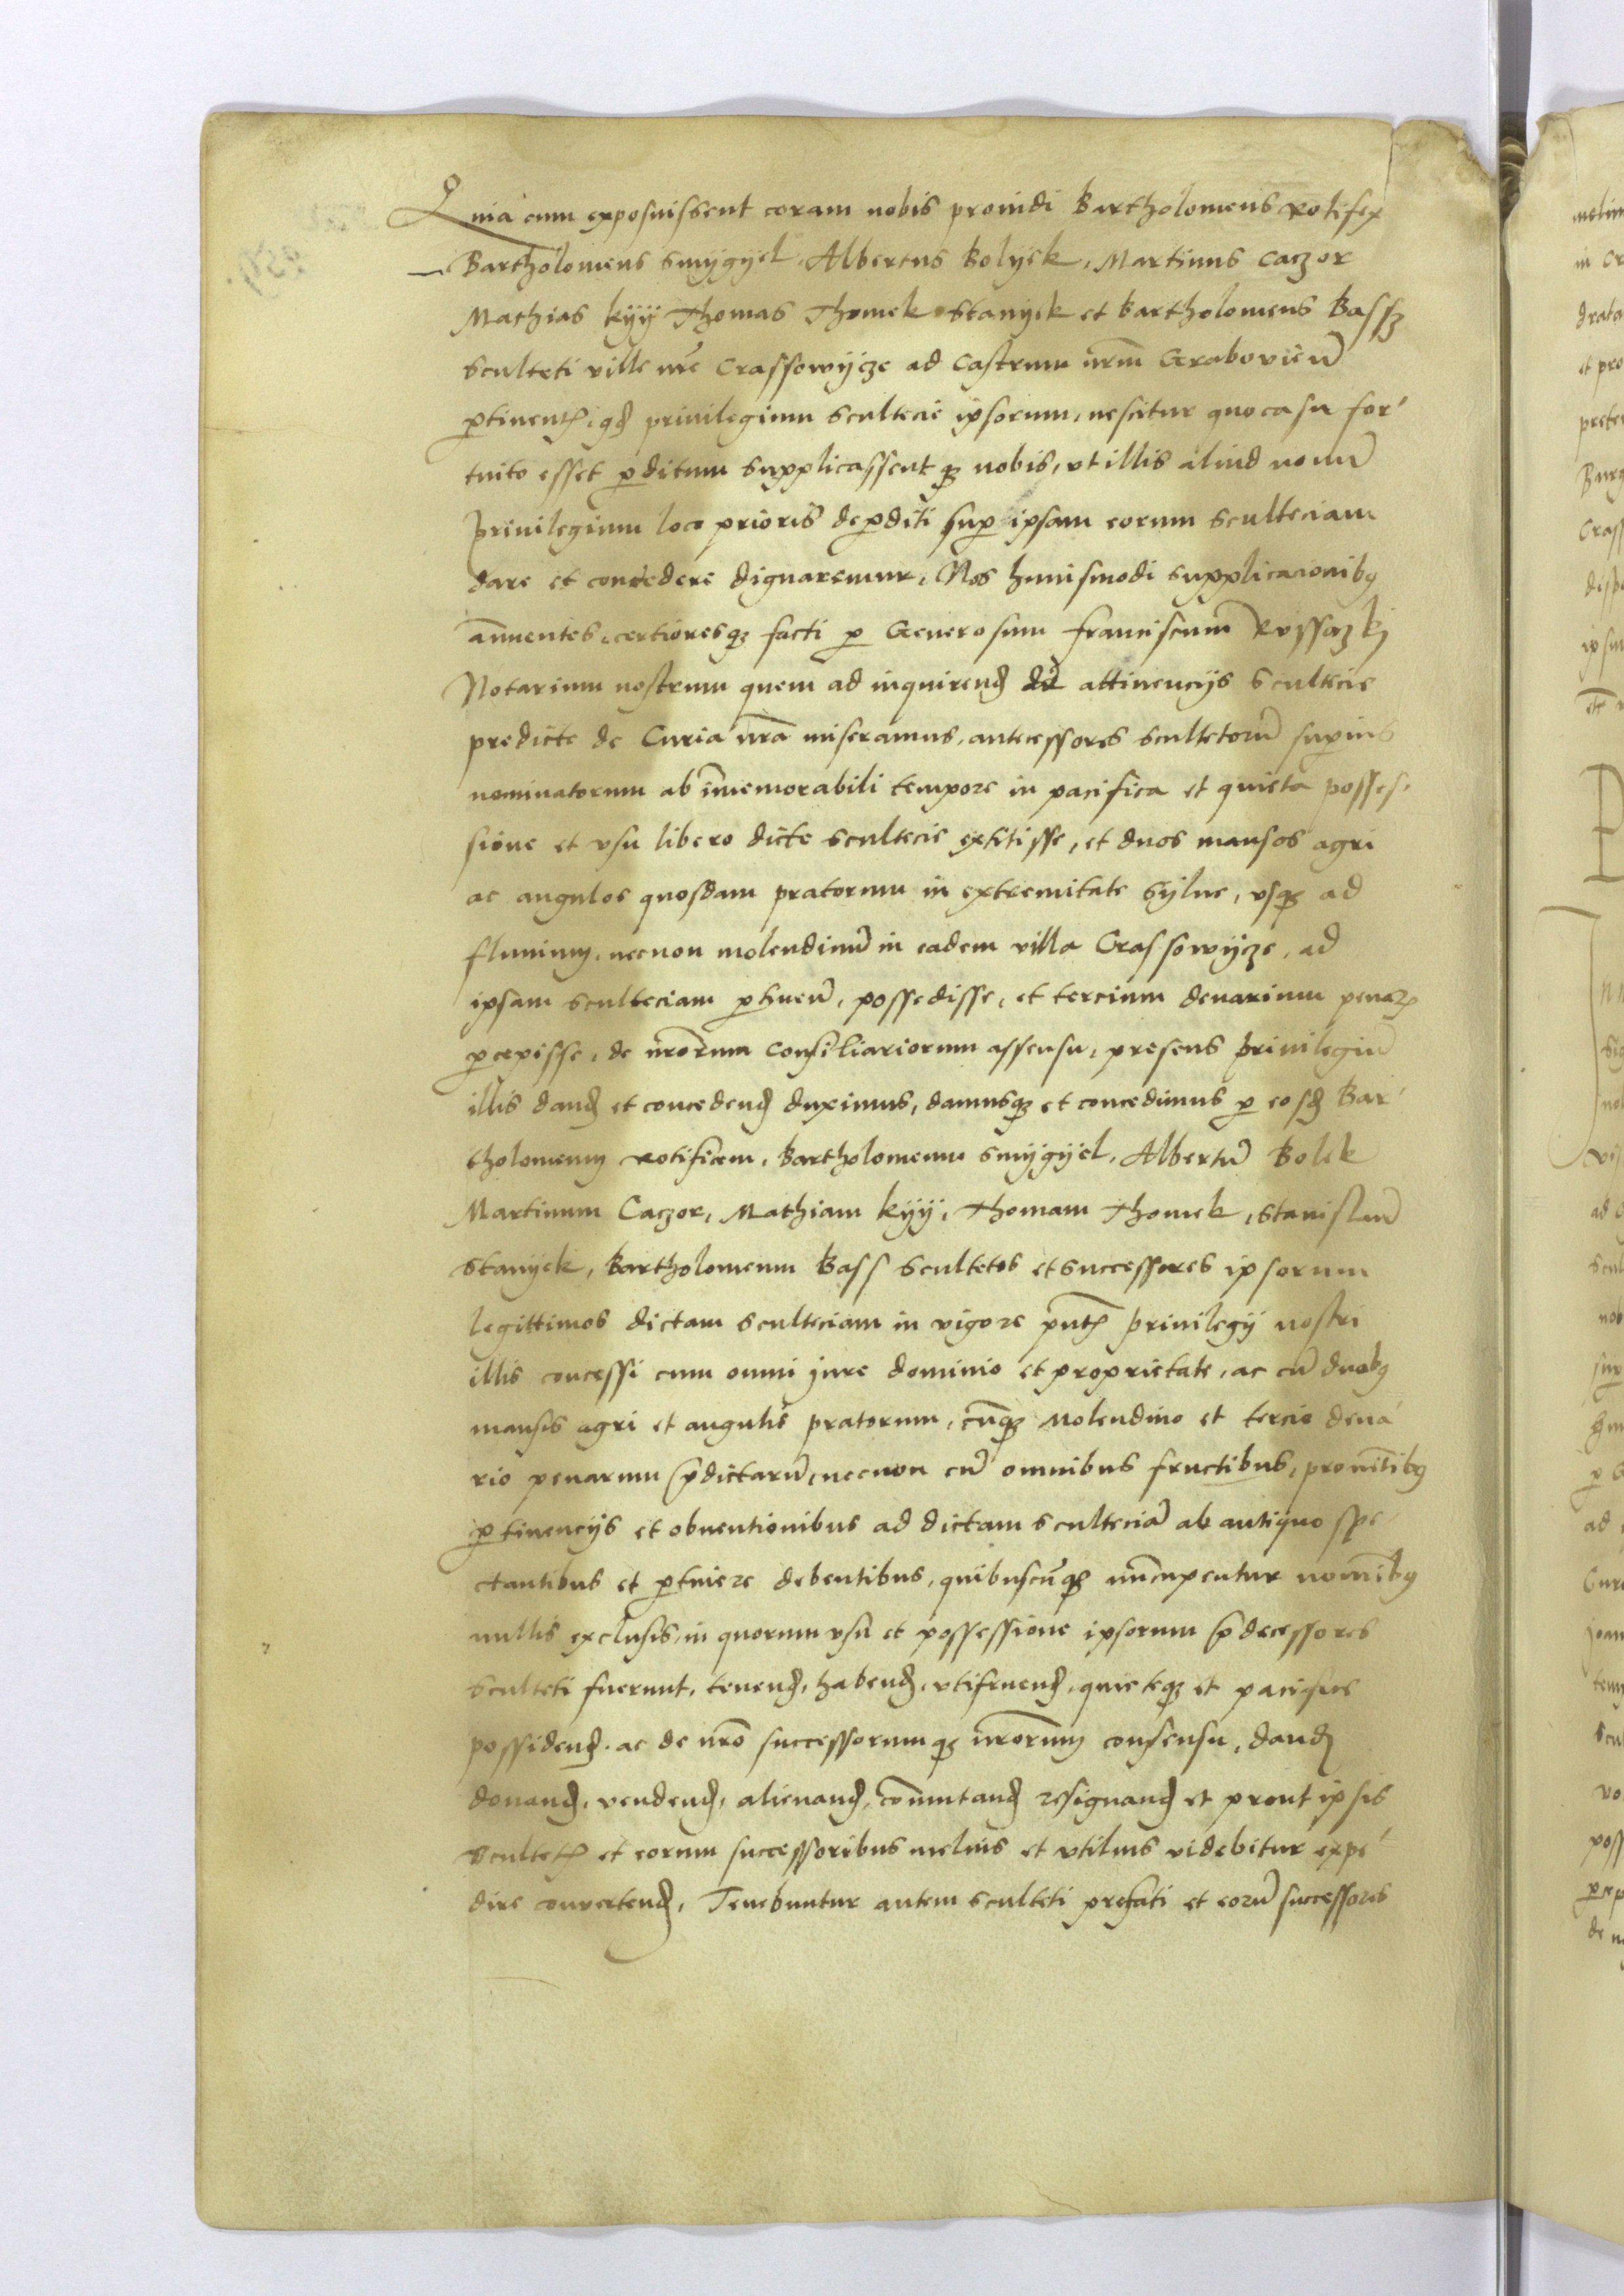 Quia cum exposuissent coram nobis prouidi Bartholomeus Rotifex
Bartholomeus Smygyel, Albertus Bolyek, Martinus Caczor
Mathias kyy Thomas Thomek Stanyek et Bartholomeus Bassz
Sculteti ville nr̃e Crassowycze ad Castrum nr̃m Graboviẽn̄
ꝑtineñ, qđ priuilegium scultecie ipsorum, nescitur quo casu for-
tuito esset ꝑditum supplicassentqꝫ nobis, vt illis aliud nouũ
Priuilegium loco prioris deꝑditi suꝑ ipsam eorum Sculteciam
dare et concedere dignaremur, Nos huiusmodi supplicacionibꝰ
añuentes, certioresqꝫ facti ꝑ Generosum franciscum Russoczkj
Notarium nostrum quem ad inquirenđ de attinencijs Scultecie
predicte de Curia nr̃a miseramus, antecessores scultetorũ superius
nominatorum ab im̃emorabili tempore in pacifica et quieta posses-
sione et vsu libero dicte Scultecie extitisse, et duos mansos agri
ac angulos quosdam pratorum in extremitate Sylue, vsqꝫ ad
fluuium, necnon molendinũ in eadem villa Crassowycze, ad
ipsam Sculteciam ꝑtineñ, possedisse, et tercium denarium penaꝝ
ꝑcepisse, de nr̃orum Consiliariorum assensu, presens Priuilegiũ
illis danđ et concedenđ duximus, damusqꝫ et concedimus ꝑ eosđ Bar-
tholomeum Rotificem, Bartholomeum Smygyel, Albertũ Bolek
Martinum Caczor, Mathiam kyy, Thomam Thomek, Stanislaũ
Stanyek, Bartholomeum Bass Scultetos et Successores ipsorum
legittimos dictam Sculteciam in vigore pñtꝭ Priuilegij nostri
illis concessi cum omni jure dominio et proprietate, ac cũ duobꝰ
mansis agri et angulis pratorum, cũqꝫ Molendino et tercio dena-
rio penarum p̃dictarũ, necnon cũ omnibus fructibus, prouẽtibꝰ
ꝑtinencijs et obuentionibus ad dictam Sculteciã ab antiquo spe-
ctantibus et ꝑtinere debentibus, quibuscũqꝫ nũcupentur nomĩbꝰ
nullis exclusis, in quorum vsu et possessione ipsorum p̃decessores
Sculteti fuerunt, tenenđ, habenđ, vtifruenđ, quieteqꝫ et pacifice
possidenđ. ac de nr̃o successorumqꝫ nr̃orum consensu, danđ
donanđ, vendenđ, alienanđ, com̃utanđ resignanđ et prout ipsis
Scultetꝭ et eorum successoribus melius et vtilius videbitur expe-
dire conuertenđ, Tenebuntur autem Sculteti prefati et eorũ successores